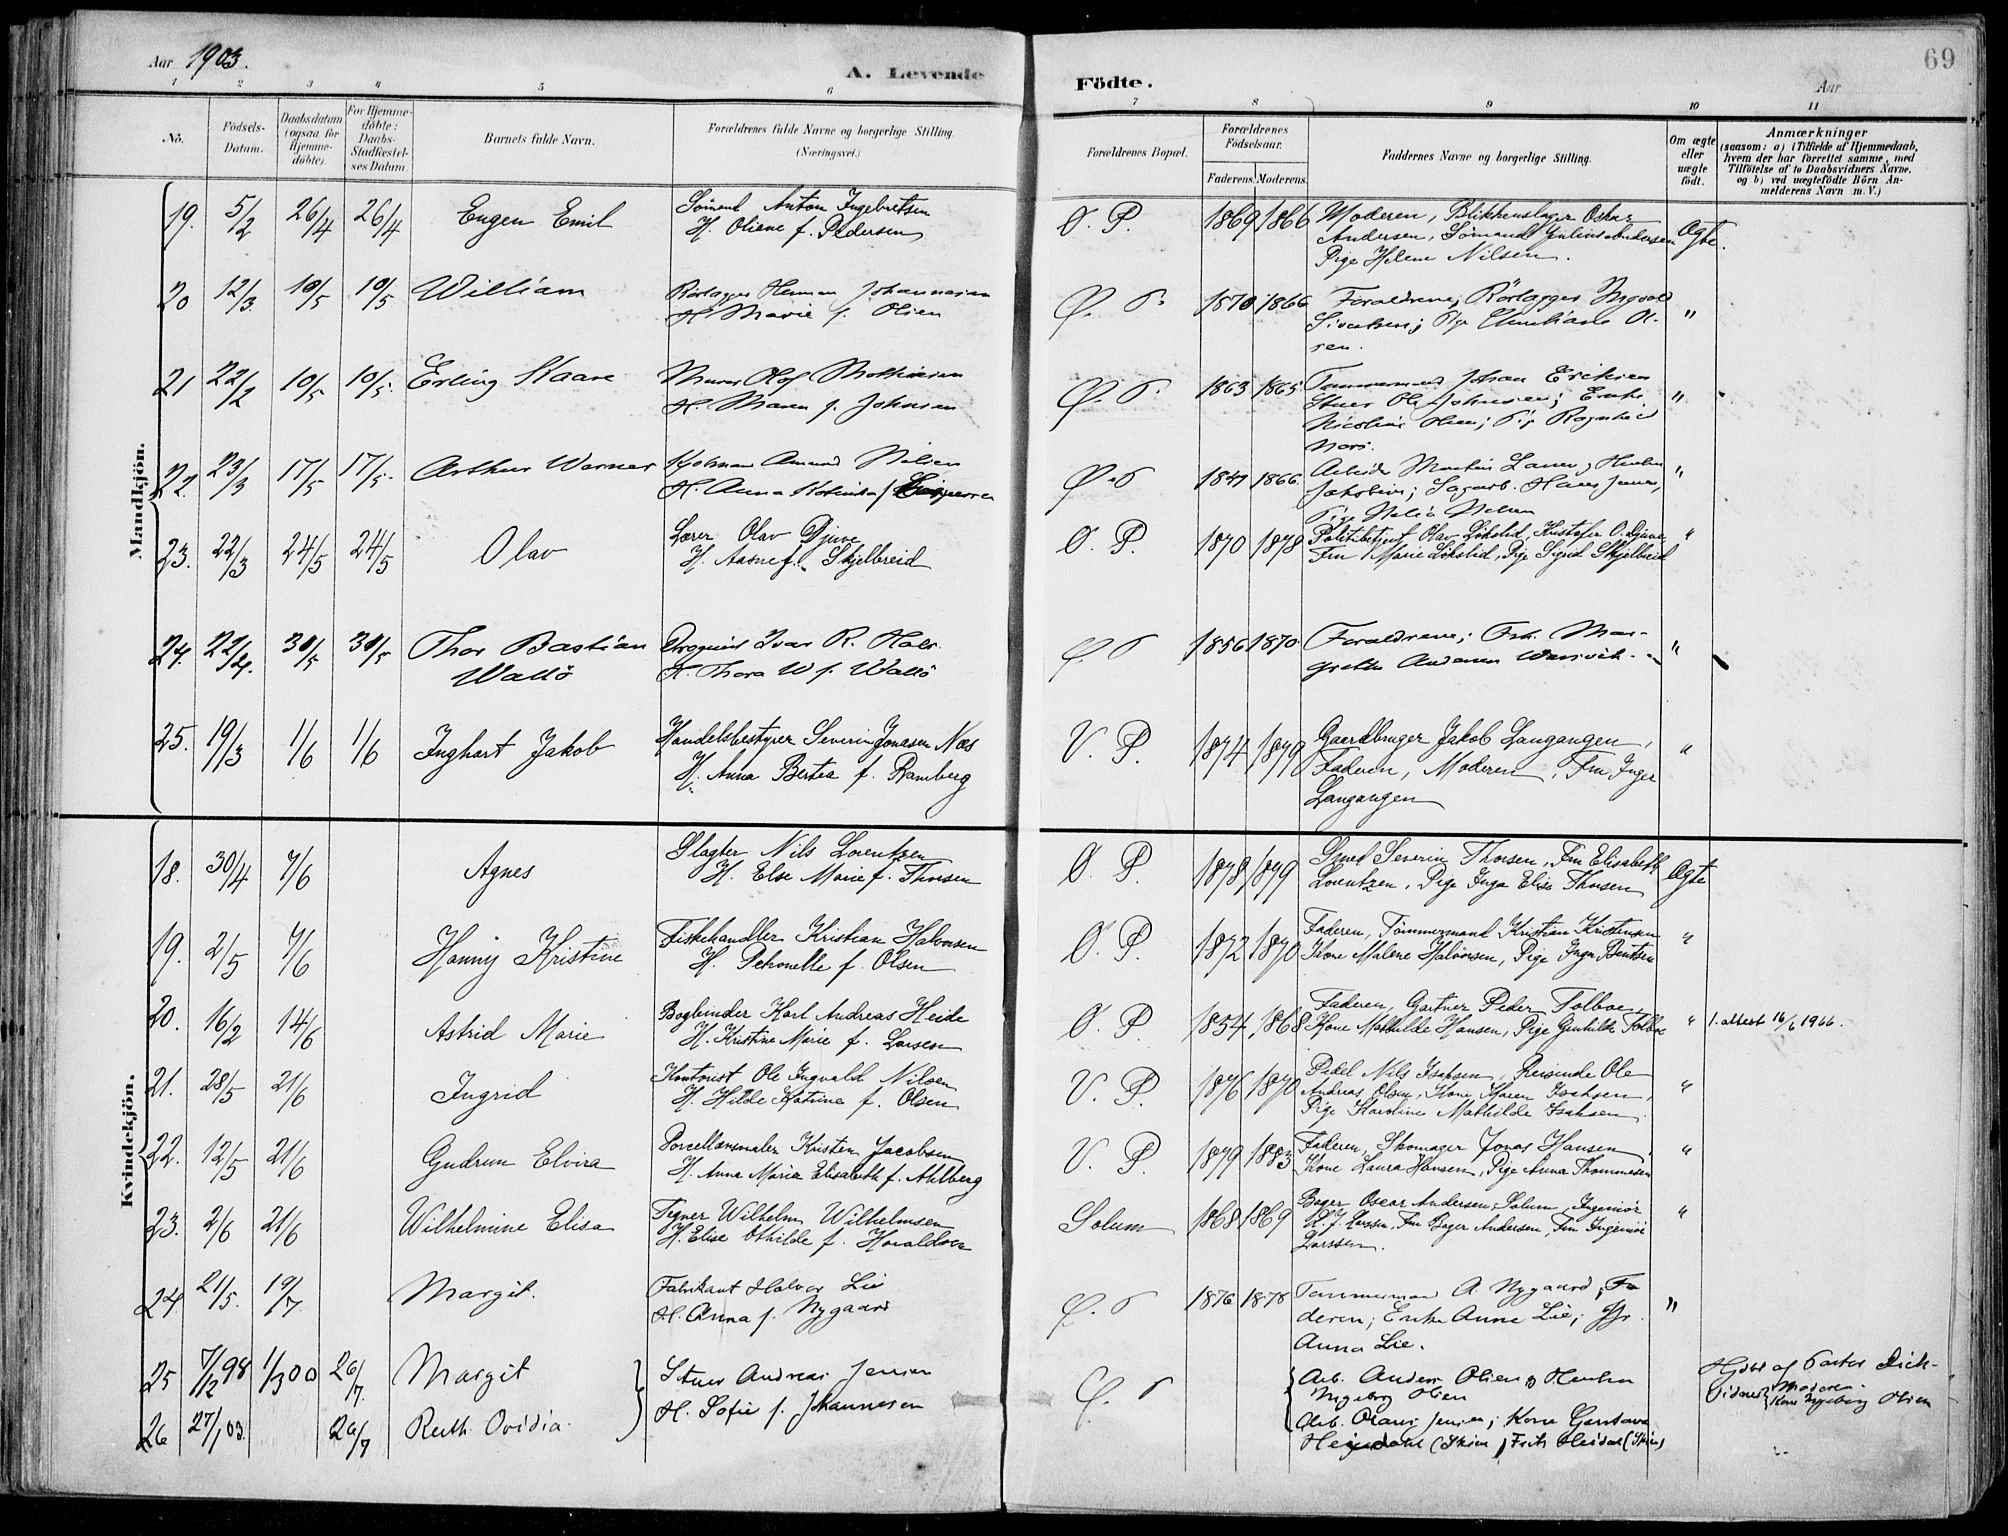 Aar 1903.
A. Levende Födte.
69
Aar
1 2 3 4 5 6 7 8 9 10 11
No.
Födsels-Datum.
Daabsdatum (ogsaa for Hjemmedöbte).
For Hjemmedöbte: Daabs-Stadfæstelses Datum.
Barnets fulde Navn.
Forældrenes fulde Navne og borgerlige Stilling.
(Næringsvei.)
Forældrenes Bopæl.
Forældrenes Födselsaar.
Faderens. Moderens.
Faddernes Navne og borgerlige Stilling.
Om ægte eller uægte födt.
Anmærkninger
(saasom: a) i Tilfælde af Hjemmedaab, hvem der har forrettet samme, med Tilföielse af to Daabsvidners Navne. og b) ved uægtefödte Börn Anmelderens Navn m. V.)
Mandkjön.
19. 5/2 26/4 26/4 Eugen Emil
Sömand Anton Ingebretsen
H. Oliane f. Pedersen
Ø. P. 1869 1866
Moderen, Blikkenslager Oskar
Andersen, Sömand Julius Andersen
Pige Helene Nilsen.
Ægte.
20 12/3 10/5 10/5 William
Rörlægger Herman Johannesen
H. Marie f. Olsen
Ø. P. 1870 1866
Forældrene, Rörlægger Ingvald
Sivertsen; Olsen.
"
21 22/2 10/5 10/5 Erling Kaare
Murer Olof Mathisen
H. Maren f. Johnsen
Ø. P. 1863 1865
Tömmermand Johan Eriksen
Stuer Ole Johnsen; Enke
Nicoline Olsen; Pige Ragnhild
"
22. 23/3 17/5 17/5 Arthur Werner
Amund Nilsen
H. Anna f.
Ø. P. 1866
Arbeider Martin
Jakobsen; Sagarb. Hans Jensen,
Pige Nilsen
"
23. 22/3 24/5 24/5 Olav
Lærer Olav Djuve
H. Aasne f. Skjelbreid
Ø. P. 1870 1878
Politibetjent Olav Lökslid, Kristofer O. Djuve
Fru Marie Lökslid, Pige Sigrid Skjelbreid
"
24. 22/4. 30/5 30/5 Thor Bastian
Wallö
Ivar R. Holt
H. Thora W f. Wallö
Ø. P. 1856 1870
Forældrene; Frk. Margrethe Andersen
"
25. 19/3 1/6 1/6 Inghart Jakob
Handelsbestyrer Severin Jonasen Næs
H. Anna Bertea f. Ramberg
V. P. 1874 1879
Gaardbruger Jakob Langangen,
Faderen, Moderen, Fru Inger
Langangen
"
Kvindekjön.
18. 30/4 7/6 Agnes
Slagter Nils Lorentzen
H. Else Marie f. Thorsen
Ø. P. 1878 1879
Smed Severin Thorsen, Fru Elisabeth
Lorentzen, Pige Inga Elise Thorsen
Ægte
19. 2/5 7/6 Hanny Kristine
Fiskehandler Kristian Halvorsen
H. Petronelle f. Olsen
Ø. P. 1872 1870
Faderen, Tömmermand Kristian Kristensen
Kone Malene Halvorsen, Pige Inga Bentsen
"
20. 16/2 14/6 Astrid Marie
Bogbinder Karl Andreas Heide
H. Kristine Marie f. Larsen
Ø. P. 1854 1868
Faderen, Gartner Peder Folboe
Kone Mathilde Hansen, Pige Folboe
" 1. attest 16/6 1966.
21. 28/5 21/6 Ingrid
Kontorist Ole Ingvald Nilsen
H. Hilde Katrine f. Olsen
V. P. 1876 1870
Pedel Nils Isaksen, Reisende Ole
Andreas Olsen, Kone Maren Isaksen,
Pige Karoline Mathilde Isaksen.
"
22. 12/5 21/6 Gudrun Elvira
Porcellænsmaler Kristen Jacobsen
H. Anna Maria Elisabeth f. Ahlberg
V. P. 1879 1883
Faderen, Skomager Jonas Hansen,
Kone Laura Hansen, Pige Anna Thommesen
"
23. 2/6 21/6 Wilhelmine Elisa
Tegner Wilhelm Wilhelmsen
H. Elise Othilde f. Haraldsen
Solum 1868 1869
Bager Oscar Andersen, Solum, Ingeniör
Larssen, Fru Bager Andersen, Fru Ingeniör
Larssen.
"
24. 21/5. 19/7. Margit.
Fabrikant Halvor Lie
H. Anna f. Nygaard
Ø. P. 1876 1878
Tömmermand A. Nygaard, Faderen;
Enke Anne Lie;
Anna Lie.
"
25 7/12 98 1/3 00 26/7. Margit
26 27/1 03. 26/7 Ruth Ovidia
Stuer Andreas Jensen
H. Sofie f. Johannesen
Ø. P.
Arb. Anders Olsen
Ingeborg Olsen
Arb. Jensen; Kone Gustava
(Skien) (Skien)
Hjdöbt af Pastor
Vidner: Moderen
Kone Ingeborg Olsen